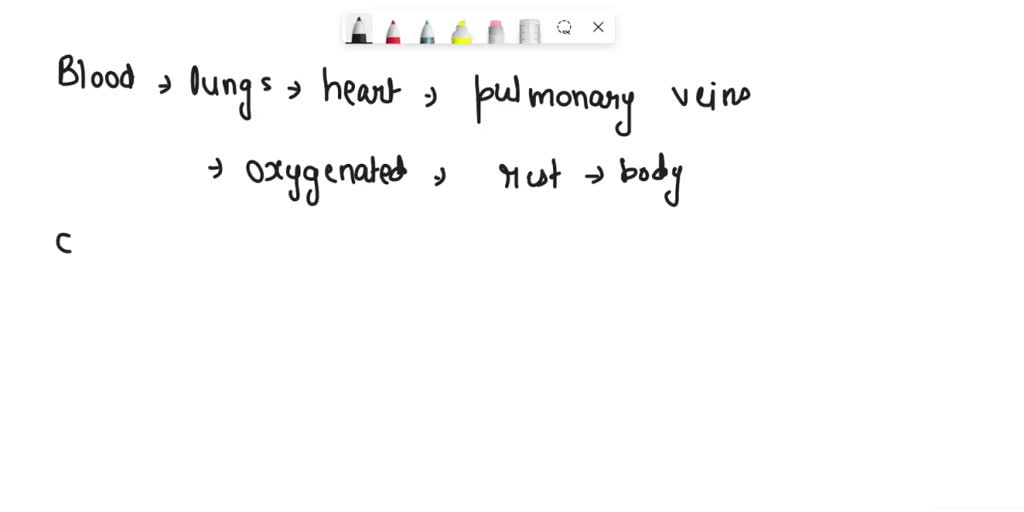 Blood → lungs → heart → pulmonary veins
→ oxygenated → rest → body
C